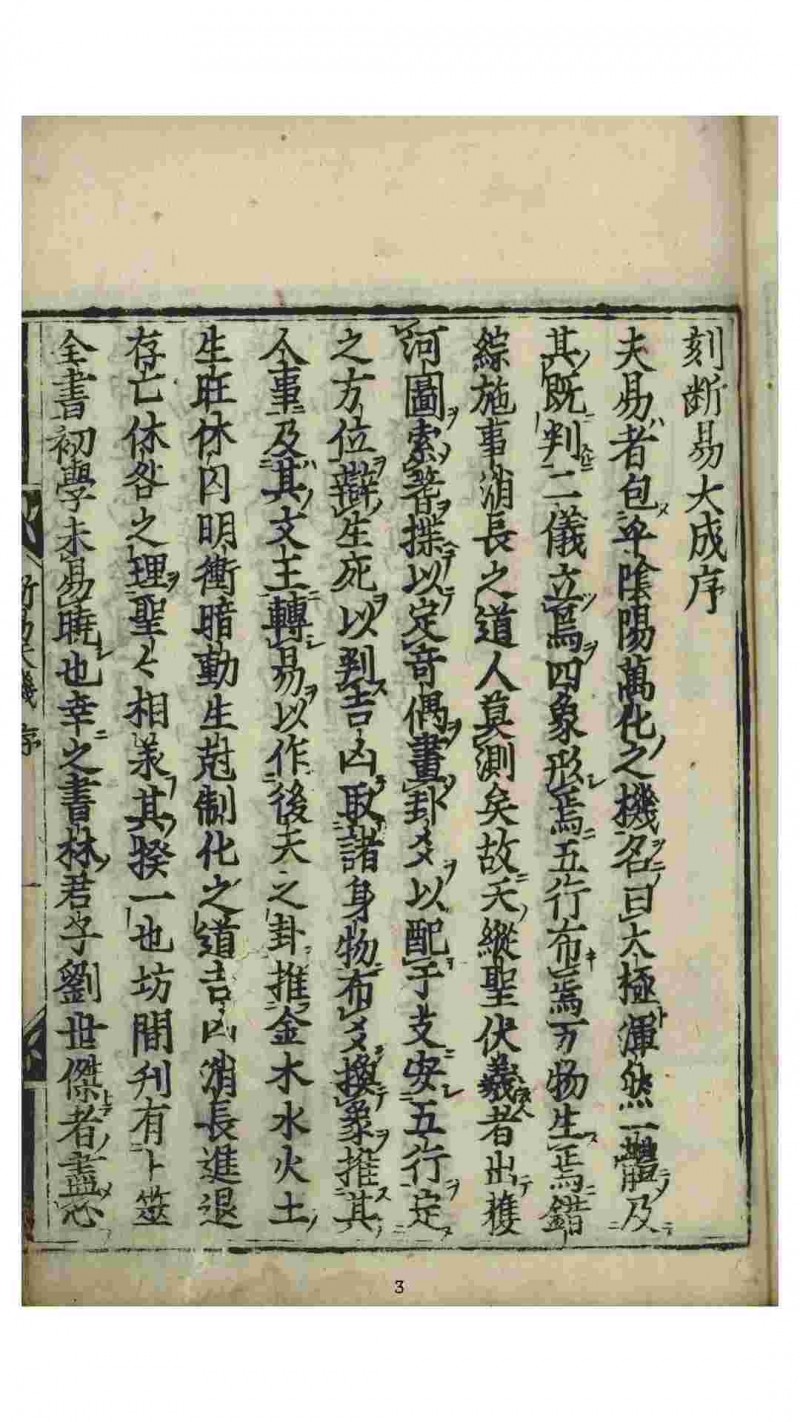 刻断易大成序
夫易者包乎陰陽萬化之機名曰太極渾然一體及
其既判二儀立焉四象形焉五行布焉万物生焉錯
綜施事消長之道人莫測矣故天縱聖伏羲者出獲
河圖索蓍揲以定竒偶畫卦爻以配干支安五行定
之方位辯生死以判吉凶取諸身物布爻換象推其
人事及其文王轉易以作後天之卦推金木水火土
生旺休囚明衝暗動生尅制化之道吉凶消長進退
存亡休咎之理聖〻相羙其揆一也坊間刋有卜筮
全書初學未易曉也幸之書林君子劉世傑者盡心
断易天機 序
3